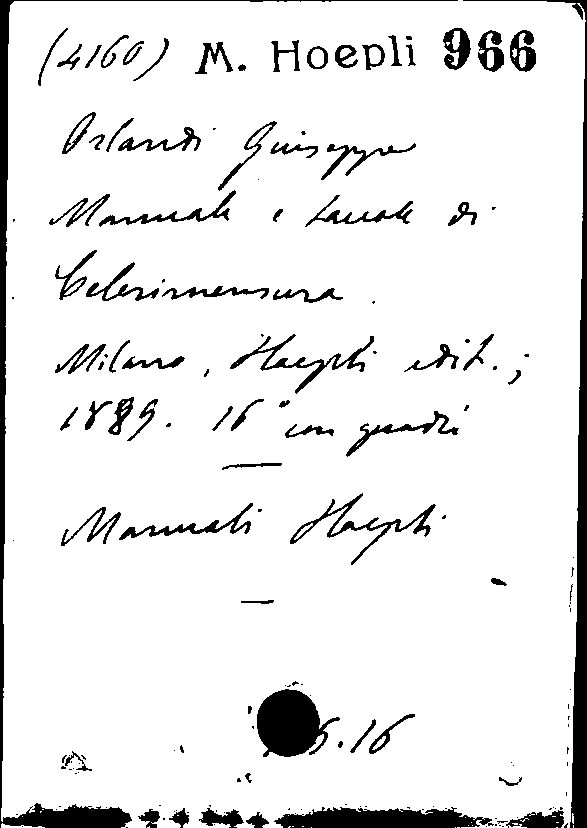 (4160) M. Hoepli 966
Orlandi Giuseppe
Manuale e tavole di
Celerimensura.
Milano, Hoepli edit.;
1889. 16° con quadri
Manuali Hoepli
6.16